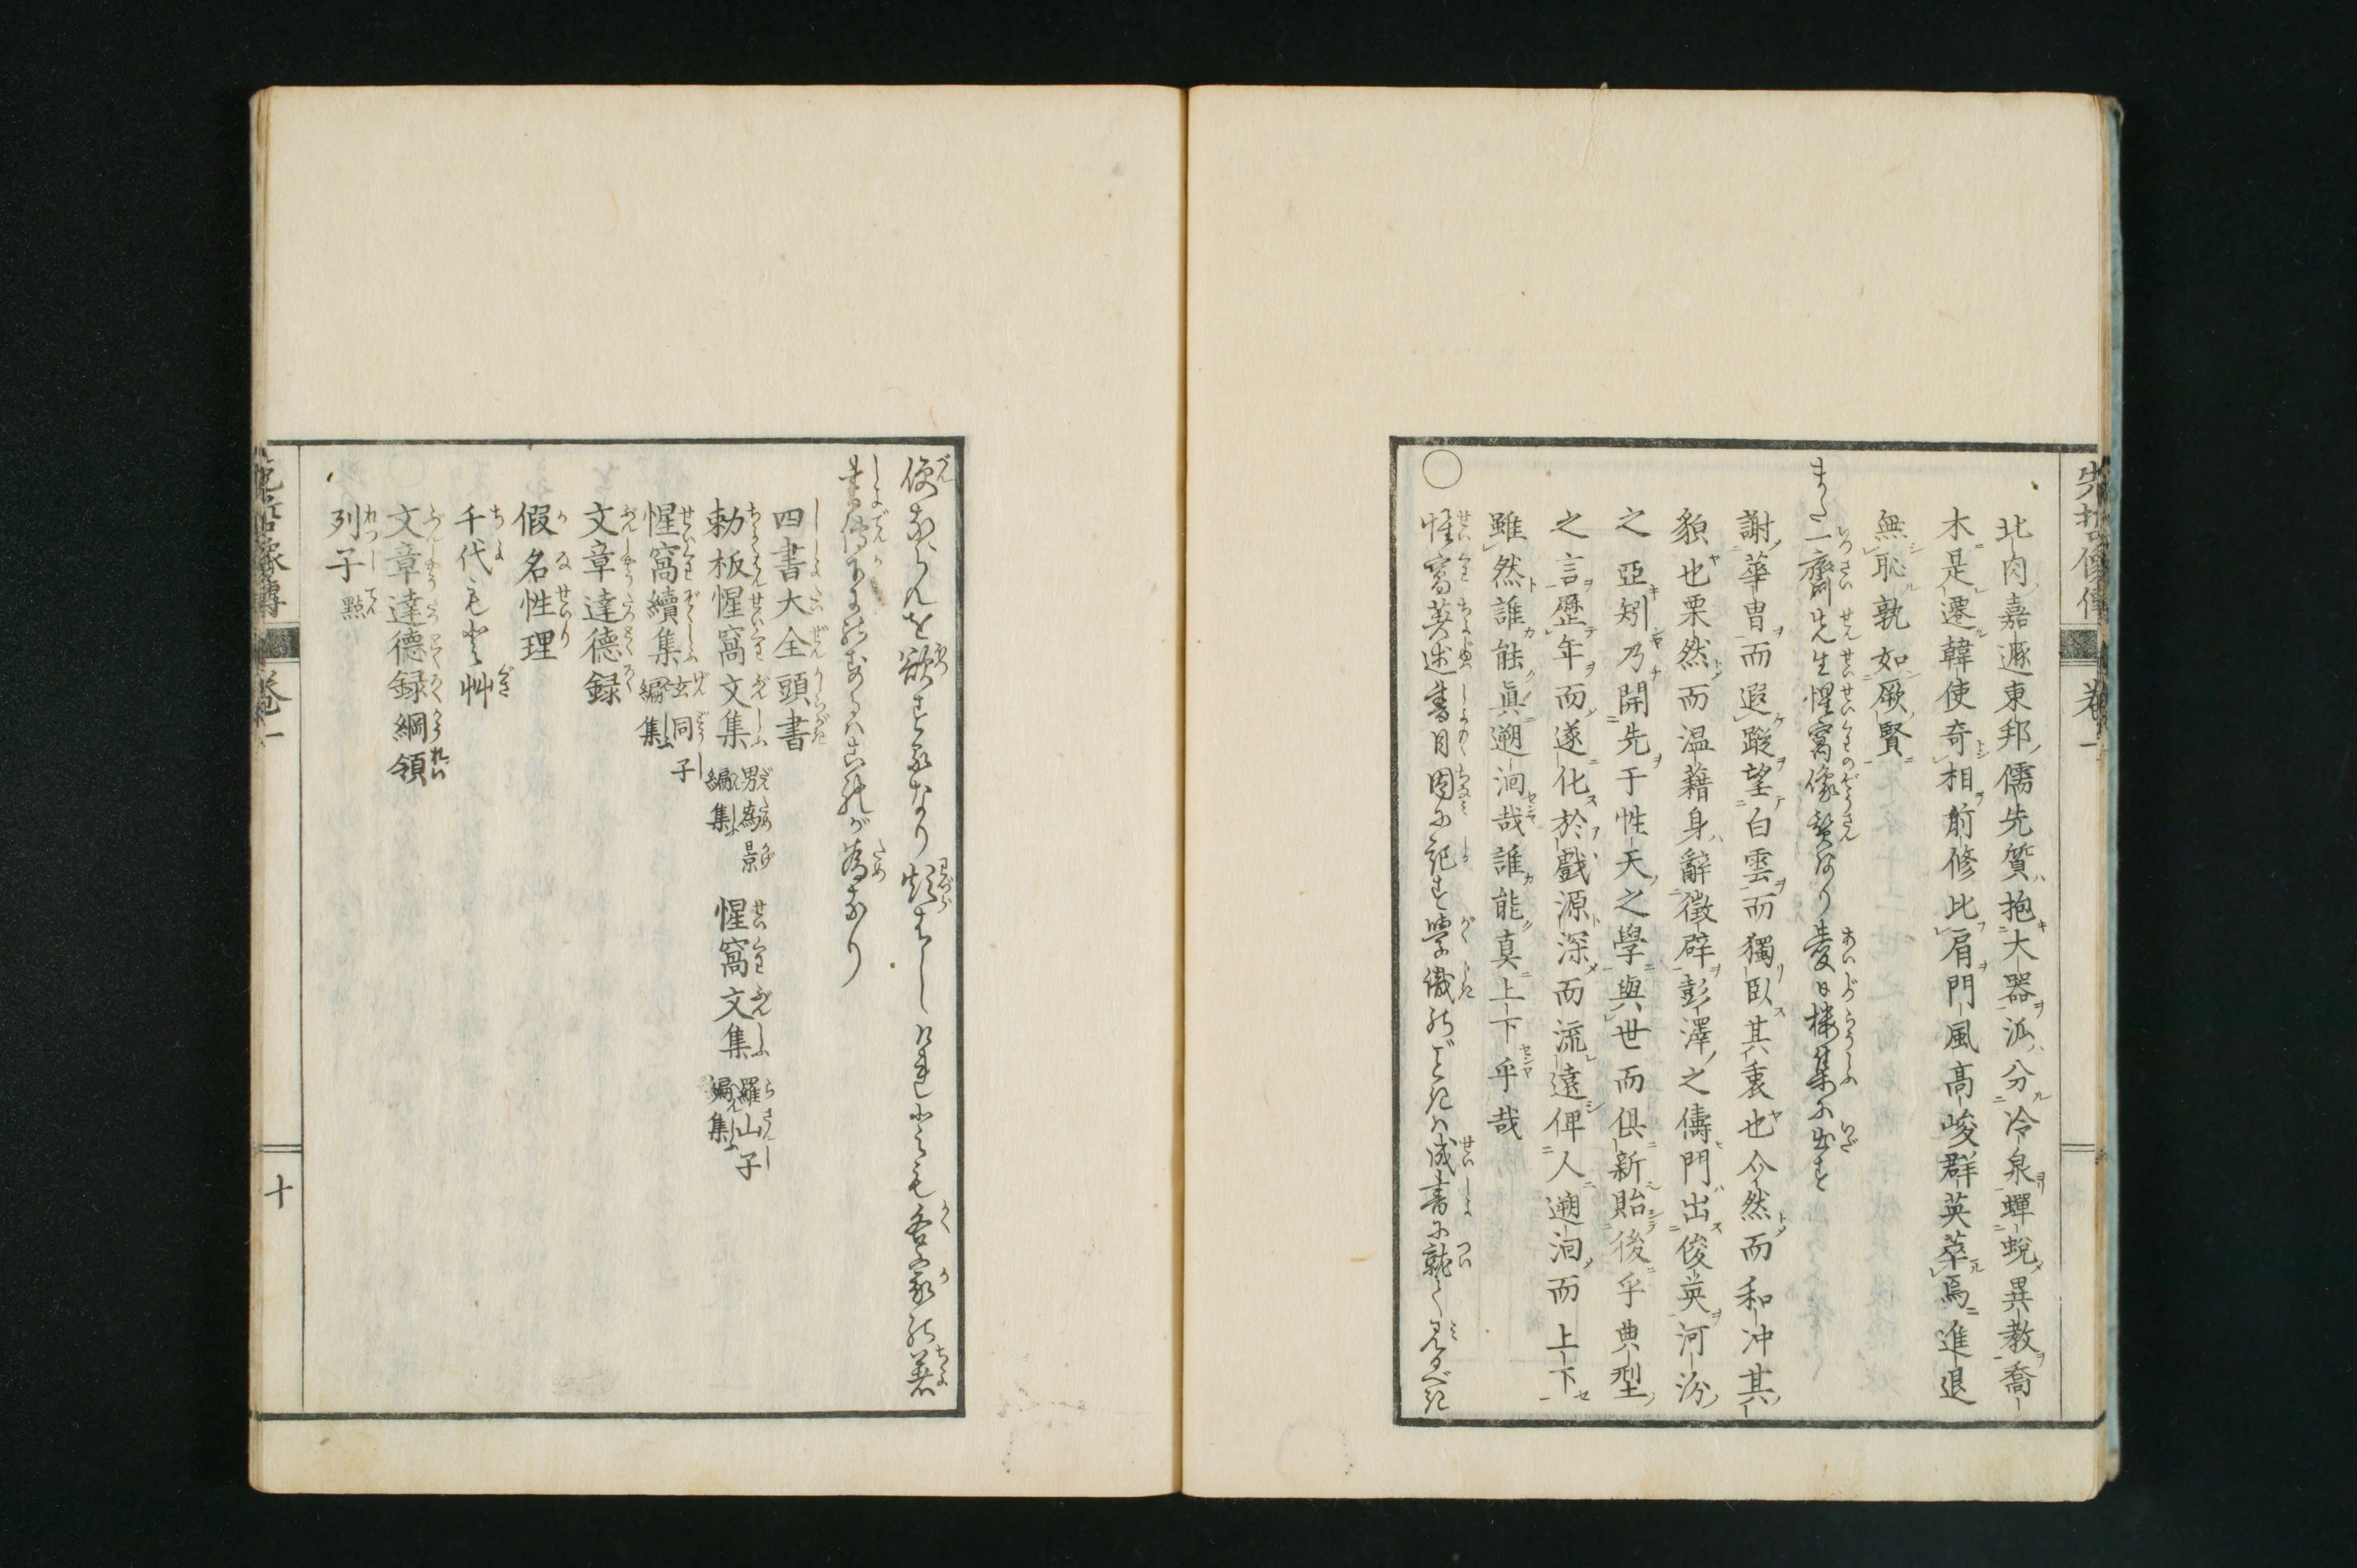 先哲像傳 卷一
北肉嘉遯東邦儒先質抱大器派分冷泉蟬蛻異教喬
木是遷韓使奇相前修比肩門風高峻群英萃焉進退
無恥孰如厥賢
また一齋先生惺窩像賛あり愛日樓集に出す
謝華冑而遐蹤望白雲而獨臥其衷也介然而和冲其
貌也栗然而温藉身辭徵辟彭澤之儔門出俊英河汾
之亞矧乃開先于性天之學與世而俱新貽後乎典型
之言歷年而遂化於戲源深而流遠俾人遡洄而上下
雖然誰能眞遡洄哉誰能真上下乎哉
○惺窩著述書目因に記す學儀のごときは成書に就て見るべき
便ならんを欲するなり煩はしけれども各家の著
書傳下に
四書大全頭書
勅板惺窩文集 男為景編集 惺窩文集 羅山子編集
惺窩續集 玄同子編集
文章達德録
假名性理
千代もと艸
文章達德録綱領
列子點
先哲像傳 卷一 十